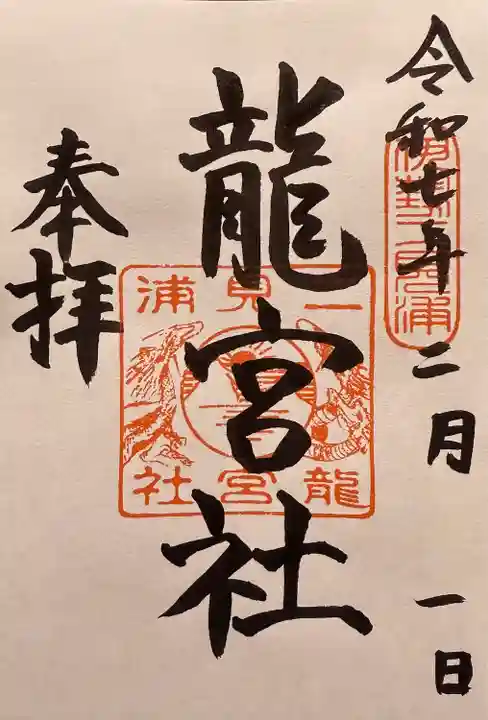 令和七年 二月 一日
伊勢二見浦
龍宮社
二見浦
龍宮社
奉拝